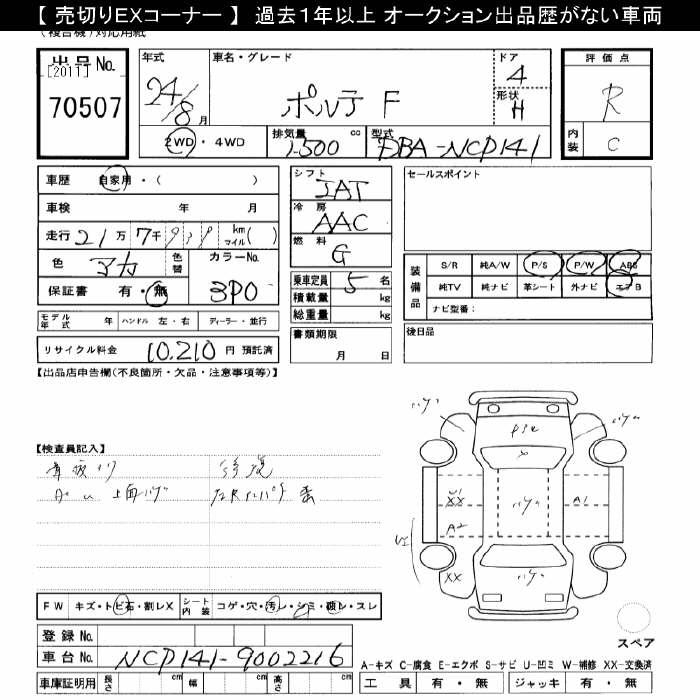 【 売切りEXコーナー 】 過去１年以上 オークション出品歴がない車両
(複合機)対応用紙
出品 No.
[2011]
70507
年式
24/8 月
車名・グレード
ポルテ F
ドア
4
形状
H
評価点
R
内装
C
2WD ・ 4WD
排気量
1500 cc
型式
DBA-NCP141
車歴 自家用・( )
車検 年 月
走行 21万 7千 km マイル( )
色 アカ 色替 カラーNo.
3P0
保証書 有・無
モデル年式 年 ハンドル 左・右 ディーラー・並行
リサイクル料金 10,210 円 預託済
シフト
IAT
冷房
AAC
燃料
G
乗車定員 5 名
積載量 kg
総重量 kg
書類期限
月 日
セールスポイント
装備品
S/R 純A/W P/S P/W ABS
純TV 純ナビ 革シート 外ナビ エアB
ナビ型番：
後日品
【出品店申告欄(不良箇所・欠品・注意事項等)】
【検査員記入】
上面ハゲ
ハゲ
ハゲ
ハゲ
ハゲ
XX
A1
A2
XX
FW キズ・トビ石・割レX シート内装 コゲ・穴・汚レ・シミ・破レ・スレ
登録 No.
車台 No. NCP141-9002216
車庫証明用 長さ cm 幅 cm 高さ cm
スペア
A-キズ C-腐食 E-エクボ S-サビ U-凹ミ W-補修 XX-交換済
工具 有・無 ジャッキ 有・無